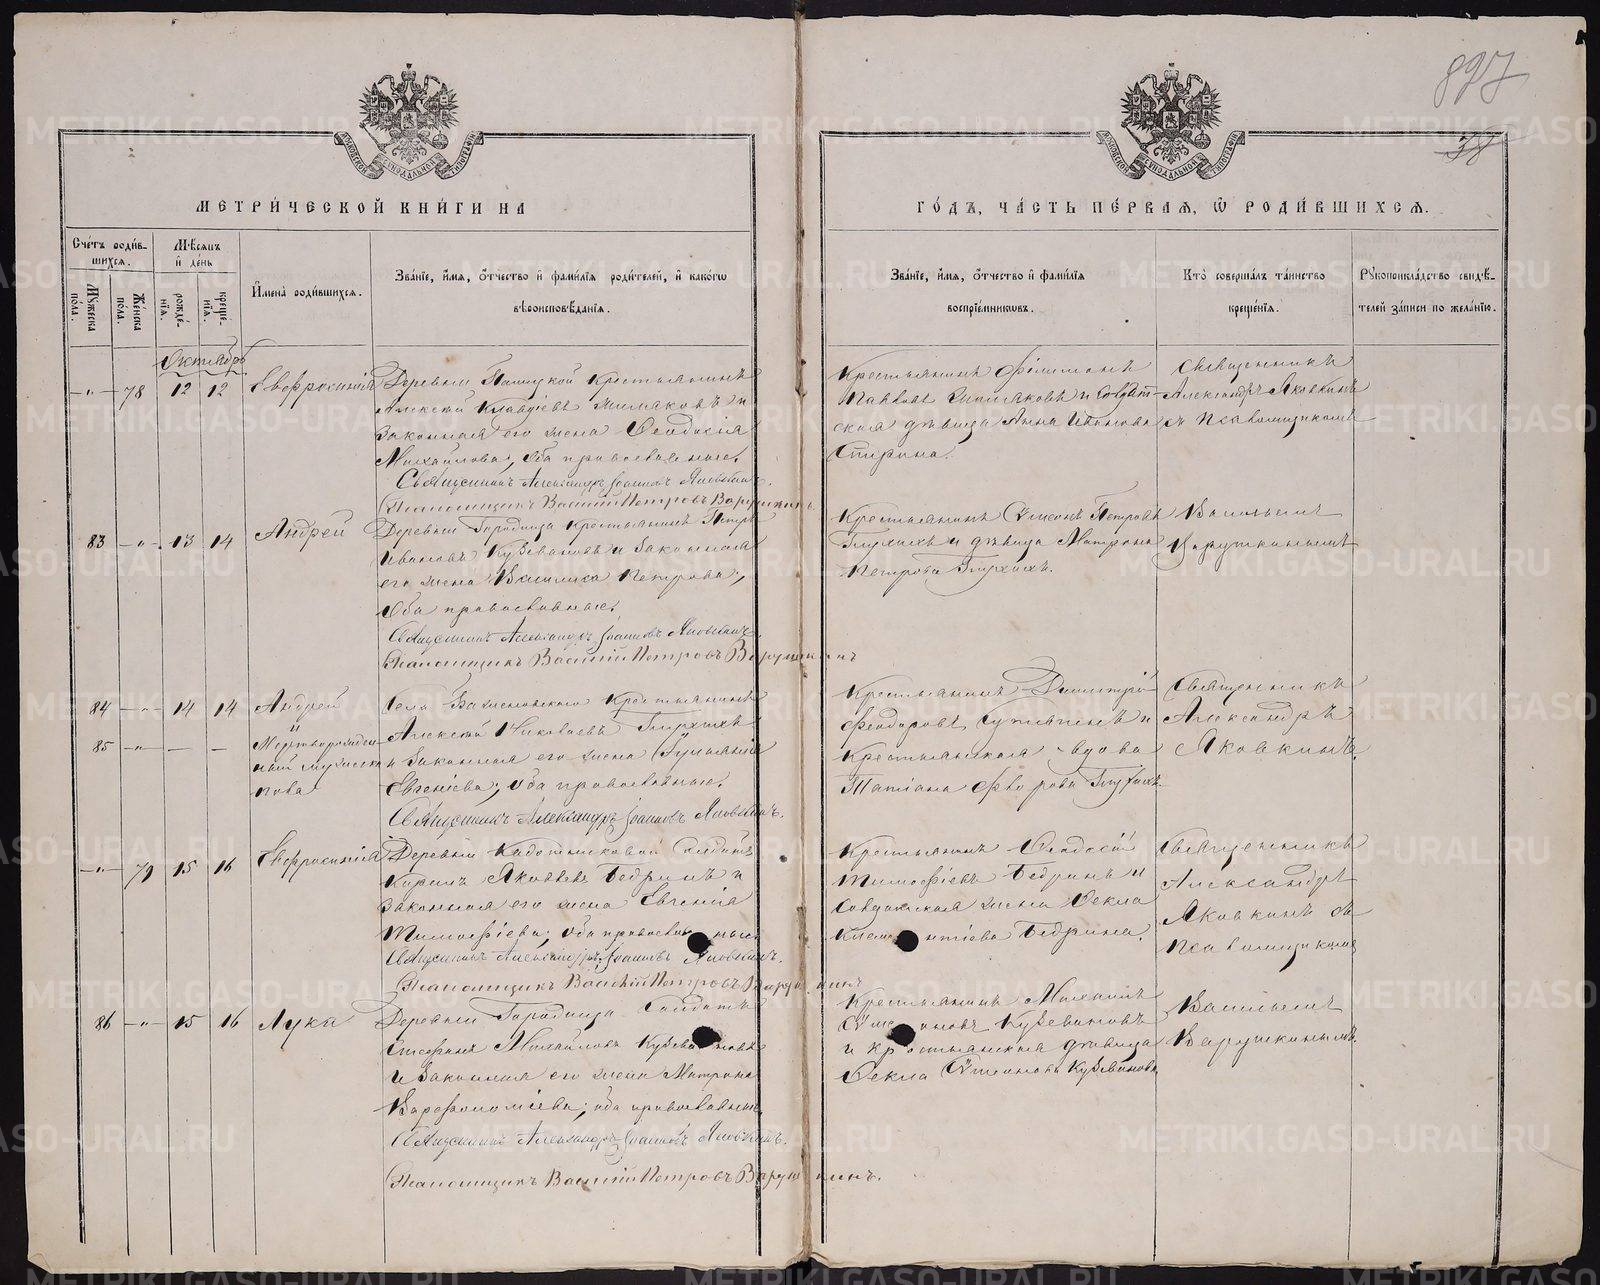 897
38
МЕТРИ́ЧЕСКОЙ КНИ́ГИ НА
ГО́ДЪ, ЧА́СТЬ ПЕ́РВАЯ, Ѡ РОДИ́ВШИХСЯ.
Сче́тъ роди́в-
шихся.
Мꙋ́жеска по́ла.
Же́нска по́ла.
Мѣ́сяцъ и҆ де́нь
рожде́-нїя.
креще́-нїя.
И҆мена̀ роди́вшихся.
Зва́нїе, и҆́мя, ѻ҆́тчество и҆ фами́лїя роди́телей, и҆ како́гѡ
вѣроисповѣ́данїя.
Зва́нїе, и҆́мя, ѻ҆́тчество и҆ фами́лїя
воспрїе́мниковъ.
Кто̀ соверша́лъ та́инство
креще́нїя.
Рꙋкоприкла́дство свидѣ́-
телей за́писи по жела́нїю.
Октябрь
-„- 78 12 12 Евфросинія
Деревни крестьянинъ
Алексѣй и
законная его жена Ѳеодосія
Михайлова, оба православные.
Священникъ Александръ Іоанновъ Яковкинъ.
Псаломщикъ Василій Петровъ Варушкинъ
Крестьянинъ Филимонъ
и солдат-
ская дѣвица Анна Иванова
Спирина.
Священникъ
Александръ Яковкинъ
съ псаломщикомъ
83 -„- 13 14 Андрей
Деревни Городища крестьянинъ Петръ
Ивановъ Кузевановъ и законная
его жена Василиса Петрова,
оба православные.
Священникъ Александръ Іоанновъ Яковкинъ
Псаломщикъ Василій Петровъ Варушкинъ
Крестьянинъ Сѵмеонъ Петровъ
Глухихъ и дѣвица Матрона
Петрова Глухихъ.
Васильемъ
Варушкинымъ
84 -„- 14 14 Андрей
и
85 -„- - - Мертворожден-
ный мужеска
пола.
Села крестьянинъ
Алексѣй Николаевъ Глухихъ
и законная его жена
Евгеніева, оба православные.
Священникъ Александръ Іоанновъ Яковкинъ.
Крестьянинъ Димитрій
Феодоровъ и
крестьянская вдова
Татіана Глухихъ
Священникъ
Александръ
Яковкинъ.
-„- 79 15 16 Евфросинія
Деревни солдатъ
Яковлевъ Бедринъ и
законная его жена Евгенія
Тимофѣева, оба православные.
Священникъ Александръ Іоанновъ Яковкинъ.
Псаломщикъ Василій Петровъ Варушкинъ
Крестьянинъ Ѳеодосій
Тимофѣевъ Бедринъ и
солдатская жена Ѳекла
Бедрина.
Священникъ
Александръ
Яковкинъ съ
псаломщикомъ
86 -„- 15 16 Лука
Деревни Городища солдатъ
Стефанъ Михайловъ Кузевановъ
и законная его жена Матрона
Варфоломѣева, оба православные
Священникъ Александръ Іоанновъ Яковкинъ.
Псаломщикъ Василій Петровъ Варушкинъ.
Крестьянинъ Михаилъ
Сѵмеоновъ Кузевановъ
и крестьянская дѣвица
Ѳекла Сѵмеонова Кузеванова
Васильемъ
Варушкинымъ.
METRIKI.GASO-URAL.RU